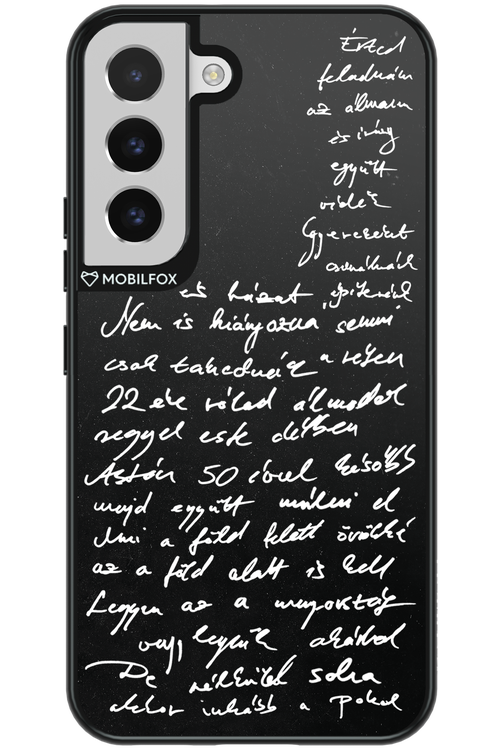 Érted
feladnám
az álmam
és irány
együtt
vidék
Gyerekeket
csinálnánk
MOBILFOX
és házat építenénk
Nem is hiányozna semmi
csak takednák a réten
22 éve rólad álmodok
reggel este délben
Aztán 50 évvel később
majd együtt múlni el
Ami a föld felett örökké
az a föld alatt is kell
Legyen az a mennyország
vagy legyünk akárhol
De nélküled soha
akkor inkább a Pokol